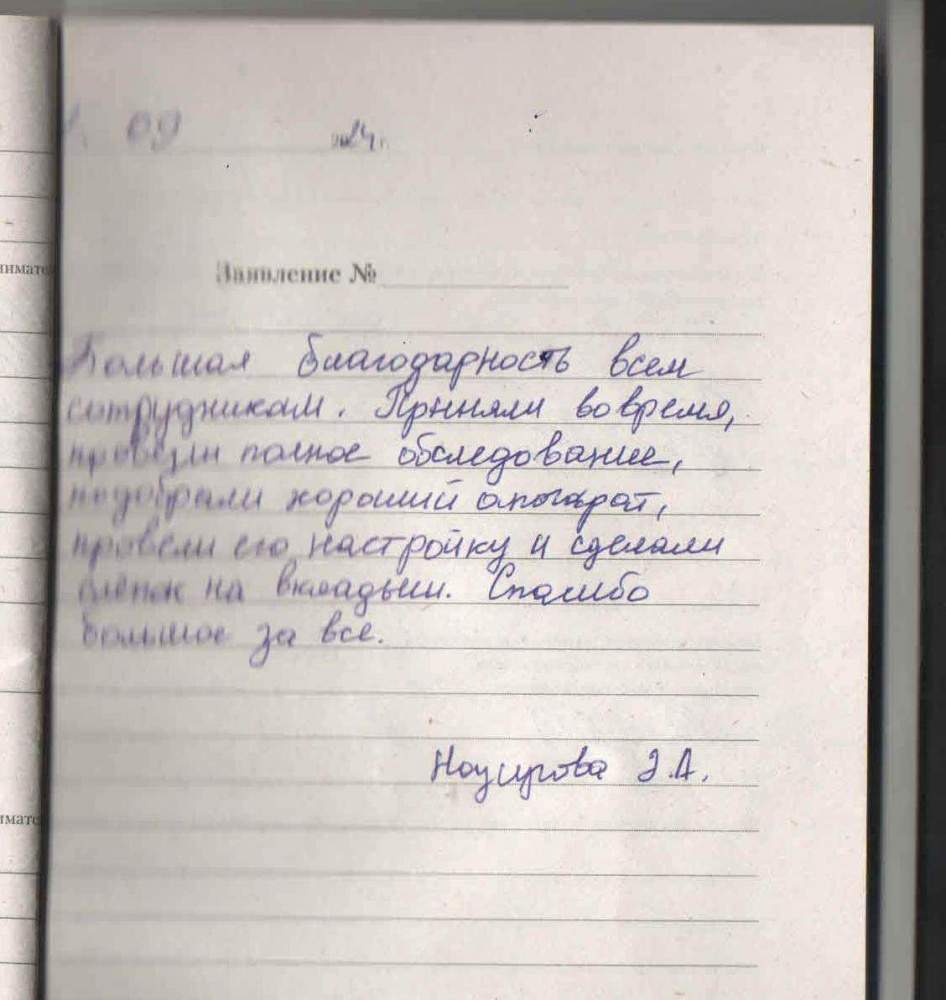 09 2024 г.
Заявление №
Большая благодарность всем
сотрудникам. Приняли вовремя,
провели полное обследование,
подобрали хороший аппарат,
провели его настройку и сделали
слепок на вкладыши. Спасибо
большое за все.
Э.А.